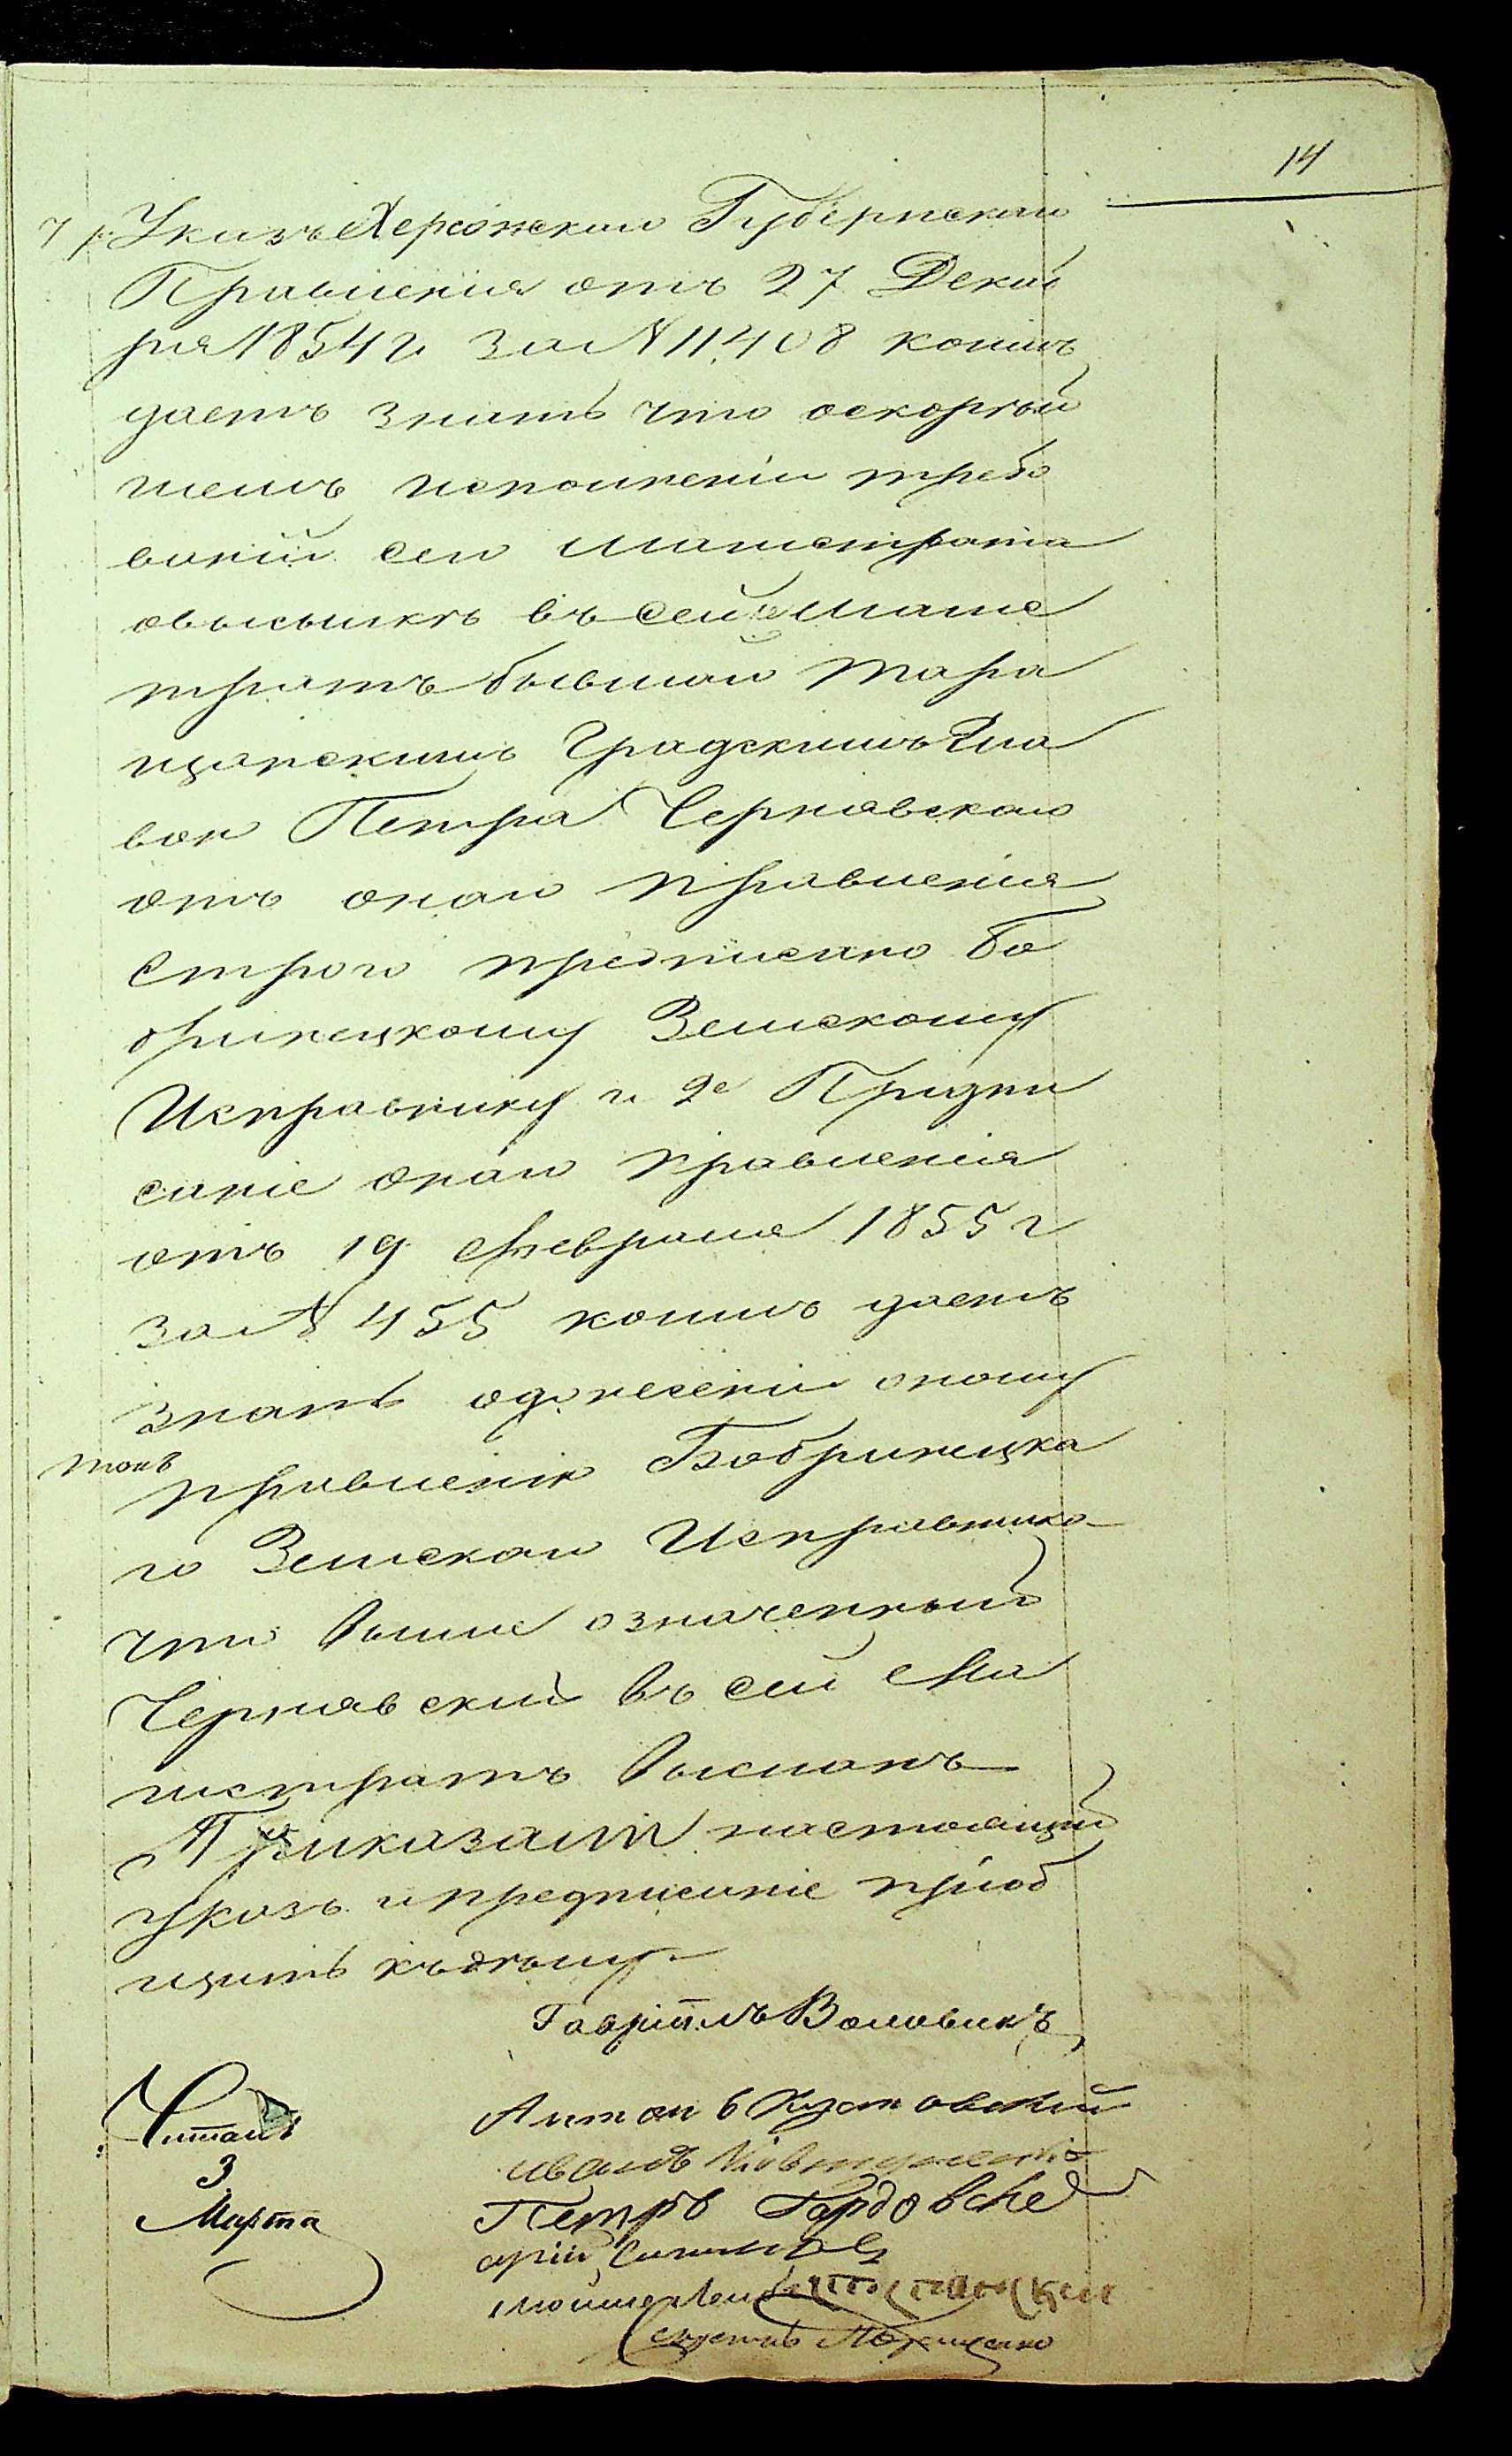 14
Указъ Херсонскаго Губернскаго
Правленія отъ 27 Декаб
ря 1854 г. за № 11,408 коимъ
даетъ знать что оскорѣй
шемъ исполненіи требо
ваній сего Магистрата
овысылкѣ въ сей Магис
тратъ бывшаго Тара
щанскимъ Градскимъ Гла
вою Петра Чернявскаго
отъ онаго Правленія
строго предписано Бо
бринецкому Земскому
Исправнику и 2е Предпи
саніе онаго Правленія
отъ 19 Февраля 1855 г
за № 455 коимъ даетъ
знать одонесеніи оному
правленію Бобринецка
го Земскаго Исправника
что выше означенный
Чернявский въ сей Ма
гистратъ высланъ
Приказали настоящій
указъ и предписаніе пріоб
щить къ дѣлу.
Гавріилъ Воловикъ
Читалъ
3
Марта
Антонъ Кустовский
иванъ
Петръ